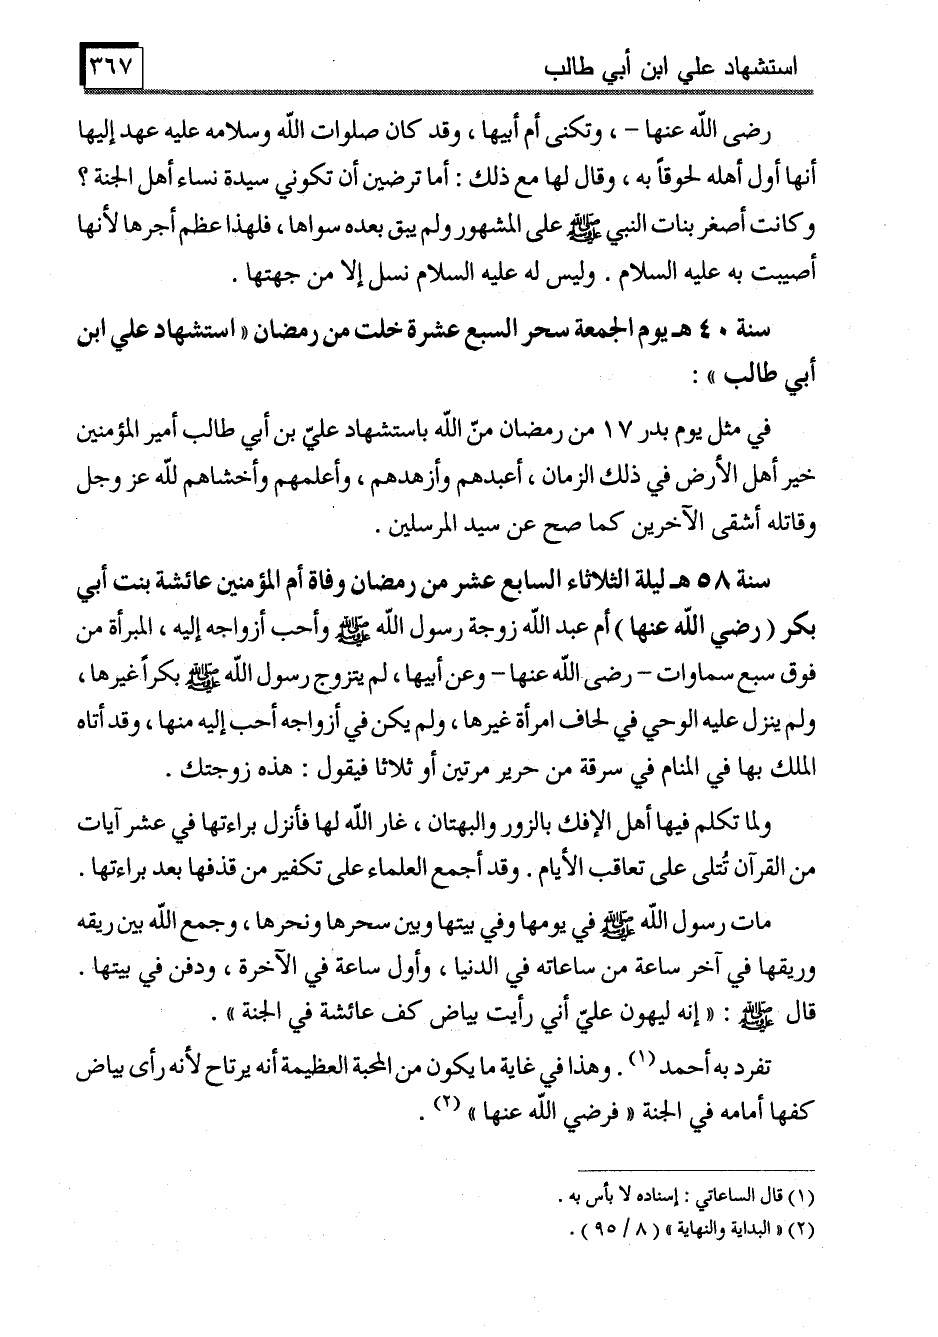 استشهاد علي ابن أبي طالب
٣٦٧
رضى الله عنها – ، وتكنى أم أبيها ، وقد كان صلوات الله وسلامه عليه عهد إليها
أنها أول أهله لحوقاً به ، وقال لها مع ذلك : أما ترضين أن تكوني سيدة نساء أهل الجنة ؟
وكانت أصغر بنات النبي ﷺ على المشهور ولم يبق بعده سواها ، فلهذا عظم أجرها لأنها
أصيبت به عليه السلام . وليس له عليه السلام نسل إلا من جهتها .
سنة ٤٠ هـ يوم الجمعة سحر السبع عشرة خلت من رمضان « استشهاد علي ابن
أبي طالب » :
في مثل يوم بدر ١٧ من رمضان منّ الله باستشهاد عليّ بن أبي طالب أمير المؤمنين
خير أهل الأرض في ذلك الزمان ، أعبدهم وأزهدهم ، وأعلمهم وأخشاهم لله عز وجل
وقاتله أشقى الآخرين كما صح عن سيد المرسلين .
سنة ٥٨ هـ ليلة الثلاثاء السابع عشر من رمضان وفاة أم المؤمنين عائشة بنت أبي
بكر ( رضي الله عنها ) أم عبد الله زوجة رسول الله ﷺ وأحب أزواجه إليه ، المبرأة من
فوق سبع سماوات – رضى الله عنها – وعن أبيها ، لم يتزوج رسول الله ﷺ بكراً غيرها ،
ولم ينزل عليه الوحي في لحاف امرأة غيرها ، ولم يكن في أزواجه أحب إليه منها ، وقد أتاه
الملك بها في المنام في سرقة من حرير مرتين أو ثلاثا فيقول : هذه زوجتك .
ولما تكلم فيها أهل الإفك بالزور والبهتان ، غار الله لها فأنزل براءتها في عشر آيات
من القرآن تُتلى على تعاقب الأيام . وقد أجمع العلماء على تكفير من قذفها بعد براءتها .
مات رسول الله ﷺ في يومها وفي بيتها وبين سحرها ونحرها ، وجمع الله بين ريقه
وريقها في آخر ساعة من ساعاته في الدنيا ، وأول ساعة في الآخرة ، ودفن في بيتها .
قال ﷺ : « إنه ليهون عليّ أني رأيت بياض كف عائشة في الجنة » .
تفرد به أحمد (١) . وهذا في غاية ما يكون من المحبة العظيمة أنه يرتاح لأنه رأى بياض
كفها أمامه في الجنة « فرضي الله عنها » (٢) .
(١) قال الساعاتي : إسناده لا بأس به .
(٢) « البداية والنهاية » ( ٨ / ٩٥ ) .